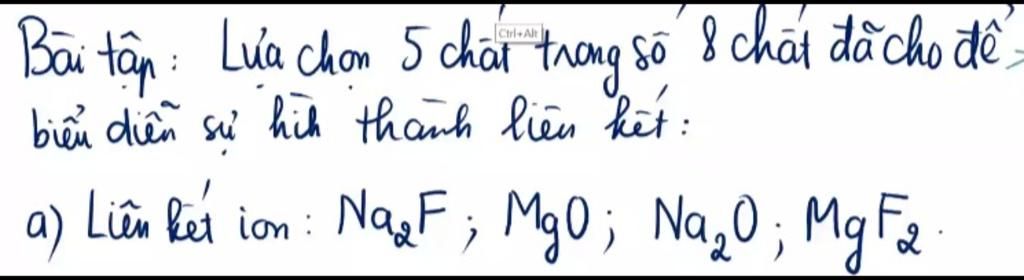 Bài tập: Lựa chọn 5 chất trong số 8 chất đã cho để
Ctrl+Alt
biểu diễn sự hình thành liên kết:
a) Liên kết ion: Na₂F; MgO; Na₂O; MgF₂.